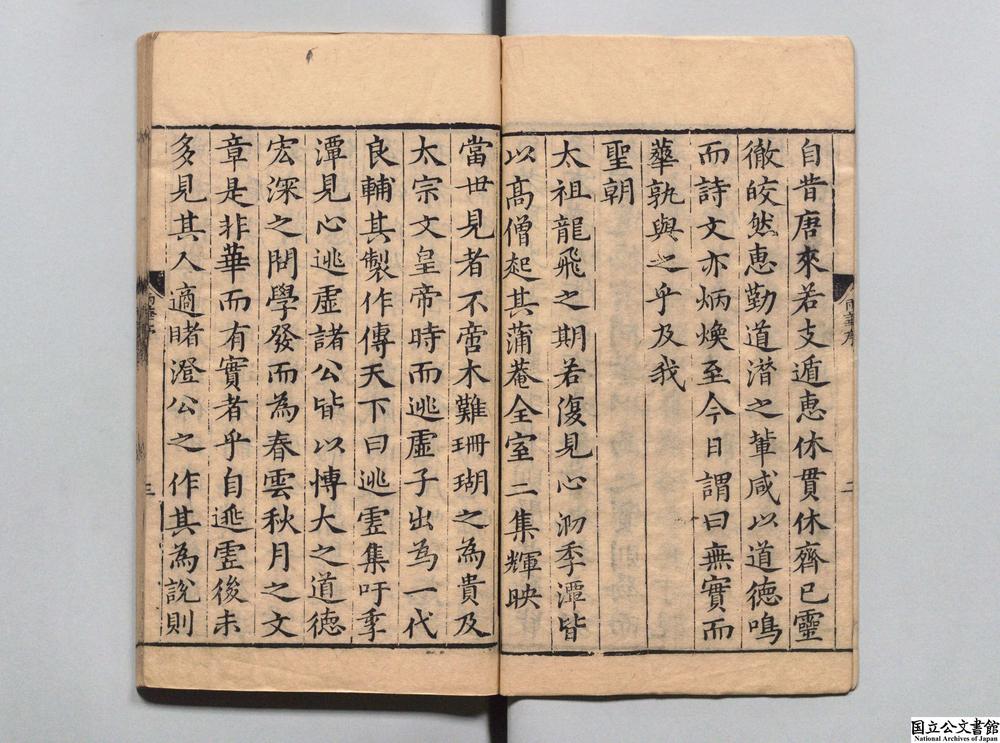 自昔唐來若支遁惠休貫休齊已靈
徹皎然惠勤道潛之軰咸以道德鳴
而詩文亦炳煥至今日謂曰無實而
華孰與之乎及我
聖朝
太祖龍飛之期若復見心泐季潭皆
以高僧起其蒲菴全室二集輝映
當世見者不啻木難珊瑚之為貴及
太宗文皇帝時而逃虛子出為一代
良輔其製作傳天下曰逃虛集吁季
潭見心逃虛諸公皆以博大之道德
宏深之問學發而為春雲秋月之文
章是非華而有實者乎自逃虛後未
多見其人適睹澄公之作其為說則
二
三
国立公文書館
National Archives of Japan